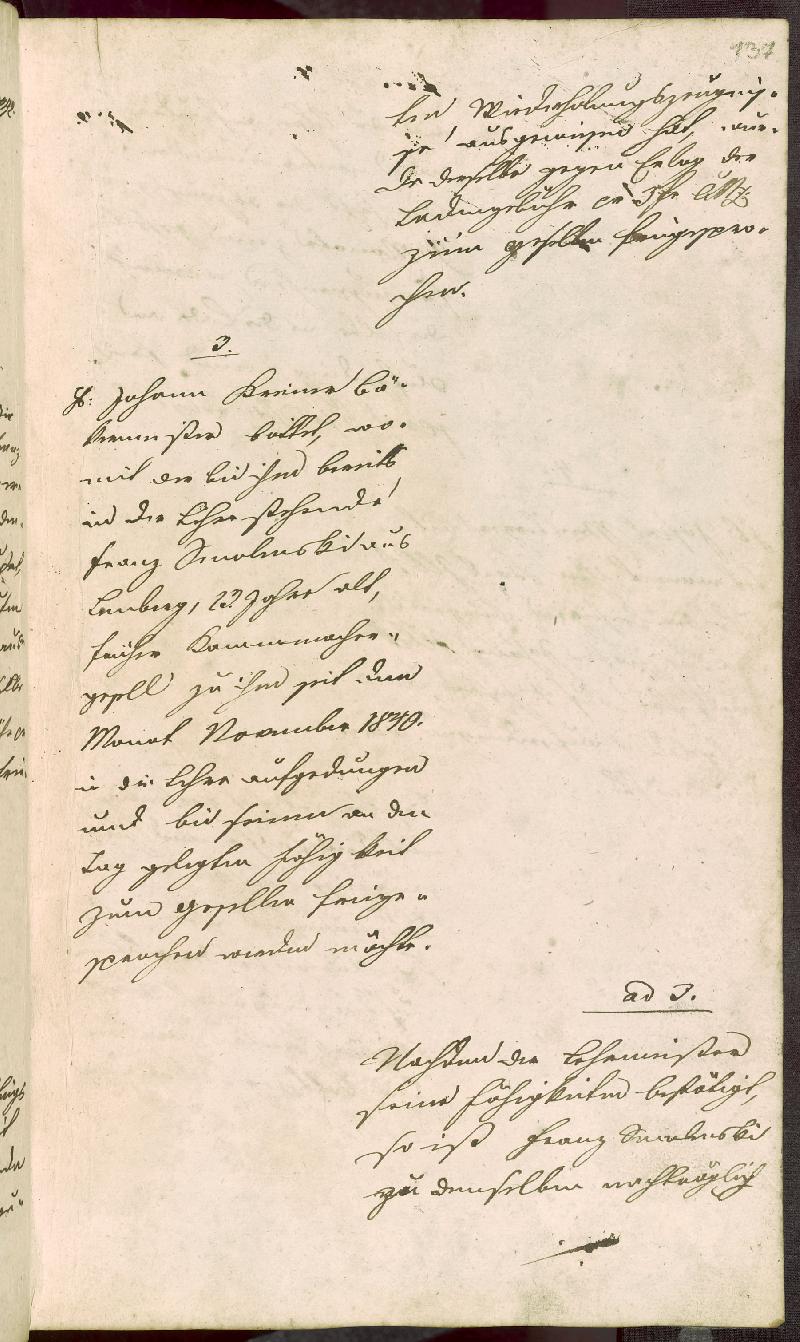 137
ten Wiederholungszeugnis-
se ausgewiesen hat, wur-
de derselbe gegen Erlag der
Ladungsgebühr
zum Gesellen freigespro-
chen.
3.
H: Johann Kreiner Bä-
kermeister bittet, wo-
mit der bei ihm bereits
in der Lehre stehende
Franz Smolinski aus
Lemberg, 22 Jahre alt,
früher Kammmacher-
gesell zu ihm seit dem
Monat November 1840.
in die Lehre aufgedungen
und bei seiner an den
Tag gelegten Fähigkeit
zum Gesellen freige-
sprochen werden möchte.
ad 3.
Nachdem der Lehrmeister
seine Fähigkeiten bestätigt,
so ist Franz Smolinski
zu demselben nachträglich